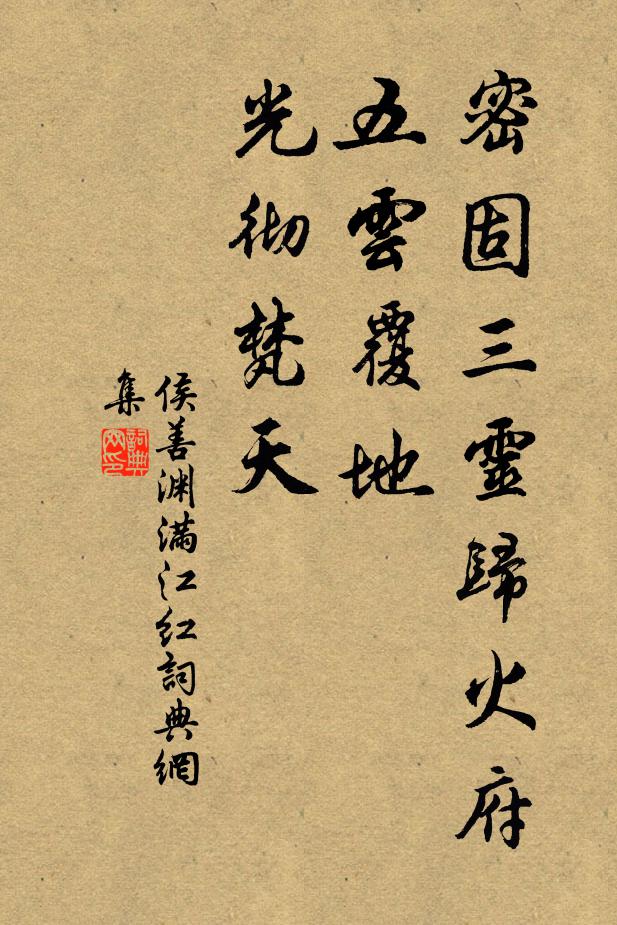 密固三靈歸火府
五雲覆地
光彻梵天
侯善渊满江红詞典網
集
詞典
网印